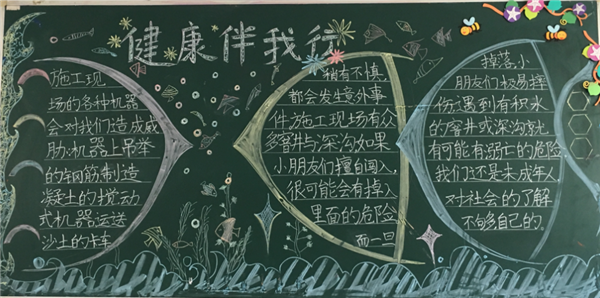 健康伴我行
施工现
场的各种机器
会对我们造成威
胁:机器上吊举
的钢筋制造
凝土的搅动
式机器运送
沙土的卡车
稍有不慎,
都会发生意外事
件施工现场有众
多窨井与深沟如果
小朋友们擅自闯入,
很可能会有掉入
里面的危险
而一旦
掉落,小
朋友们极易摔
伤遇到有积水
的窨井或深沟就
有可能有溺亡的危险
我们还是未成年人
对社会的了解
不够自己的。